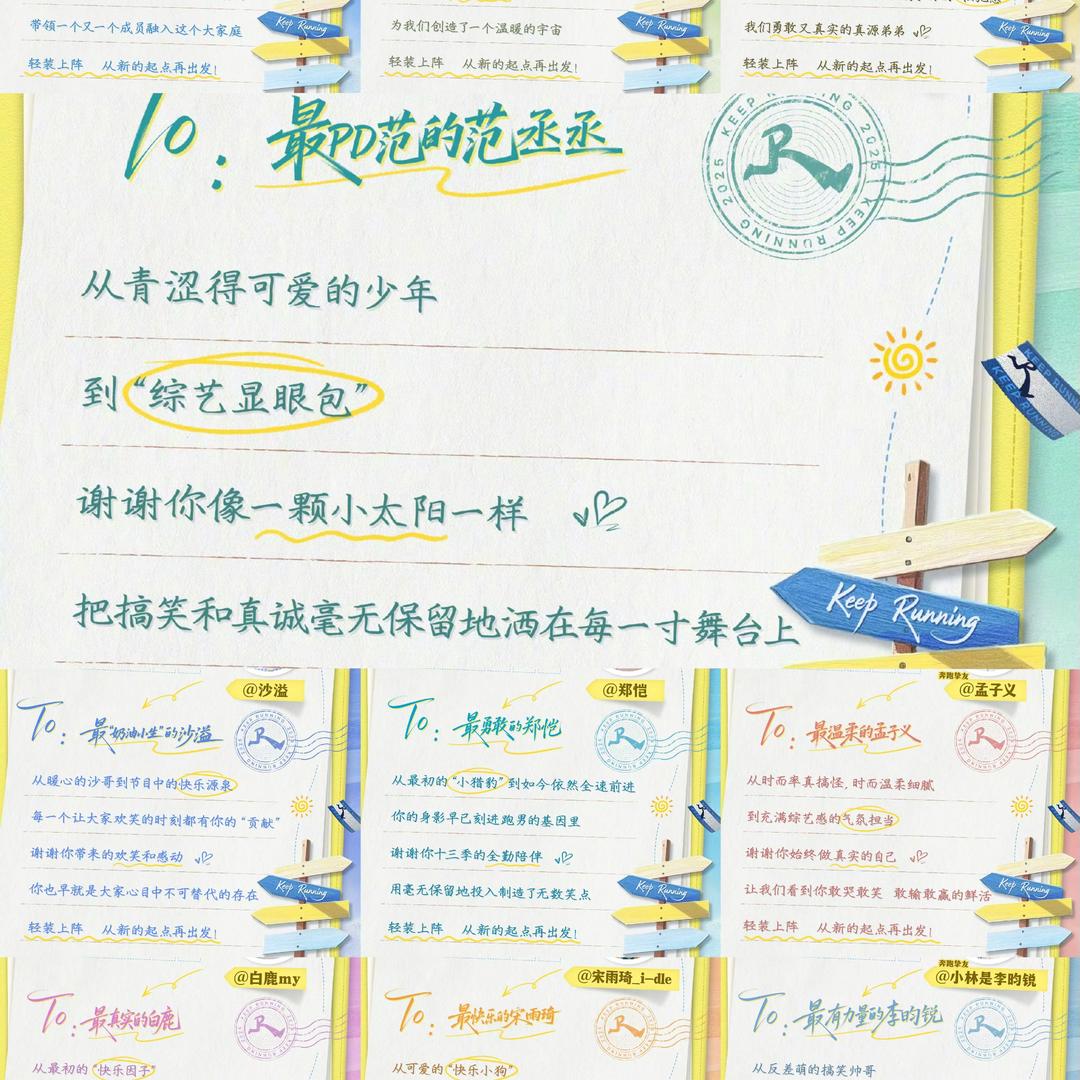 带领一个又一个成员融入这个大家庭
轻装上阵 从新的起点再出发!
Keep Running
为我们创造了一个温暖的宇宙
轻装上阵 从新的起点再出发!
Keep Running
我们勇敢又真实的真源弟弟
轻装上阵 从新的起点再出发!
Keep Running
To: 最PD范的范丞丞
KEEP RUNNING 2025 KEEP RUNNING 2025
从青涩得可爱的少年
到“综艺显眼包”
谢谢你像一颗小太阳一样
把搞笑和真诚毫无保留地洒在每一寸舞台上
KEEP RUNNING
Keep Running
@沙溢
To: 最“奶油小生”的沙溢
从暖心的沙哥到节目中的快乐源泉
每一个让大家欢笑的时刻都有你的“贡献”
谢谢你带来的欢笑和感动
你也早就是大家心目中不可替代的存在
Keep Running
轻装上阵 从新的起点再出发!
@郑恺
To: 最勇敢的郑恺
从最初的“小猎豹”到如今依然全速前进
你的身影早已刻进跑男的基因里
谢谢你十三季的全勤陪伴
用毫无保留地投入制造了无数笑点
Keep Running
轻装上阵 从新的起点再出发!
奔跑挚友
@孟子义
To: 最温柔的孟子义
从时而率真搞怪,时而温柔细腻
到充满综艺感的气氛担当
谢谢你始终做真实的自己
让我们看到你敢哭敢笑 敢输敢赢的鲜活
Keep Running
轻装上阵 从新的起点再出发!
@白鹿my
To: 最真实的白鹿
从最初的“快乐因子”
@宋雨琦_i-dle
To: 最快乐的宋雨琦
从可爱的“快乐小狗”
奔跑挚友
@小林是李昀锐
To: 最有力量的李昀锐
从反差萌的搞笑帅哥